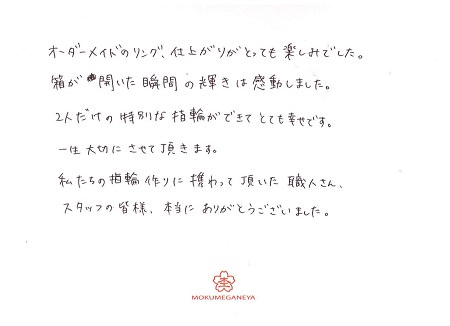 オーダーメイドのリング、仕上がりがとっても楽しみでした。
箱が開いた瞬間の輝きは感動しました。
2人だけの特別な指輪ができてとても幸せです。
一生大切にさせて頂きます。
私たちの指輪作りに携わって頂いた職人さん、
スタッフの皆様、本当にありがとうございました。
MOKUMEGANEYA